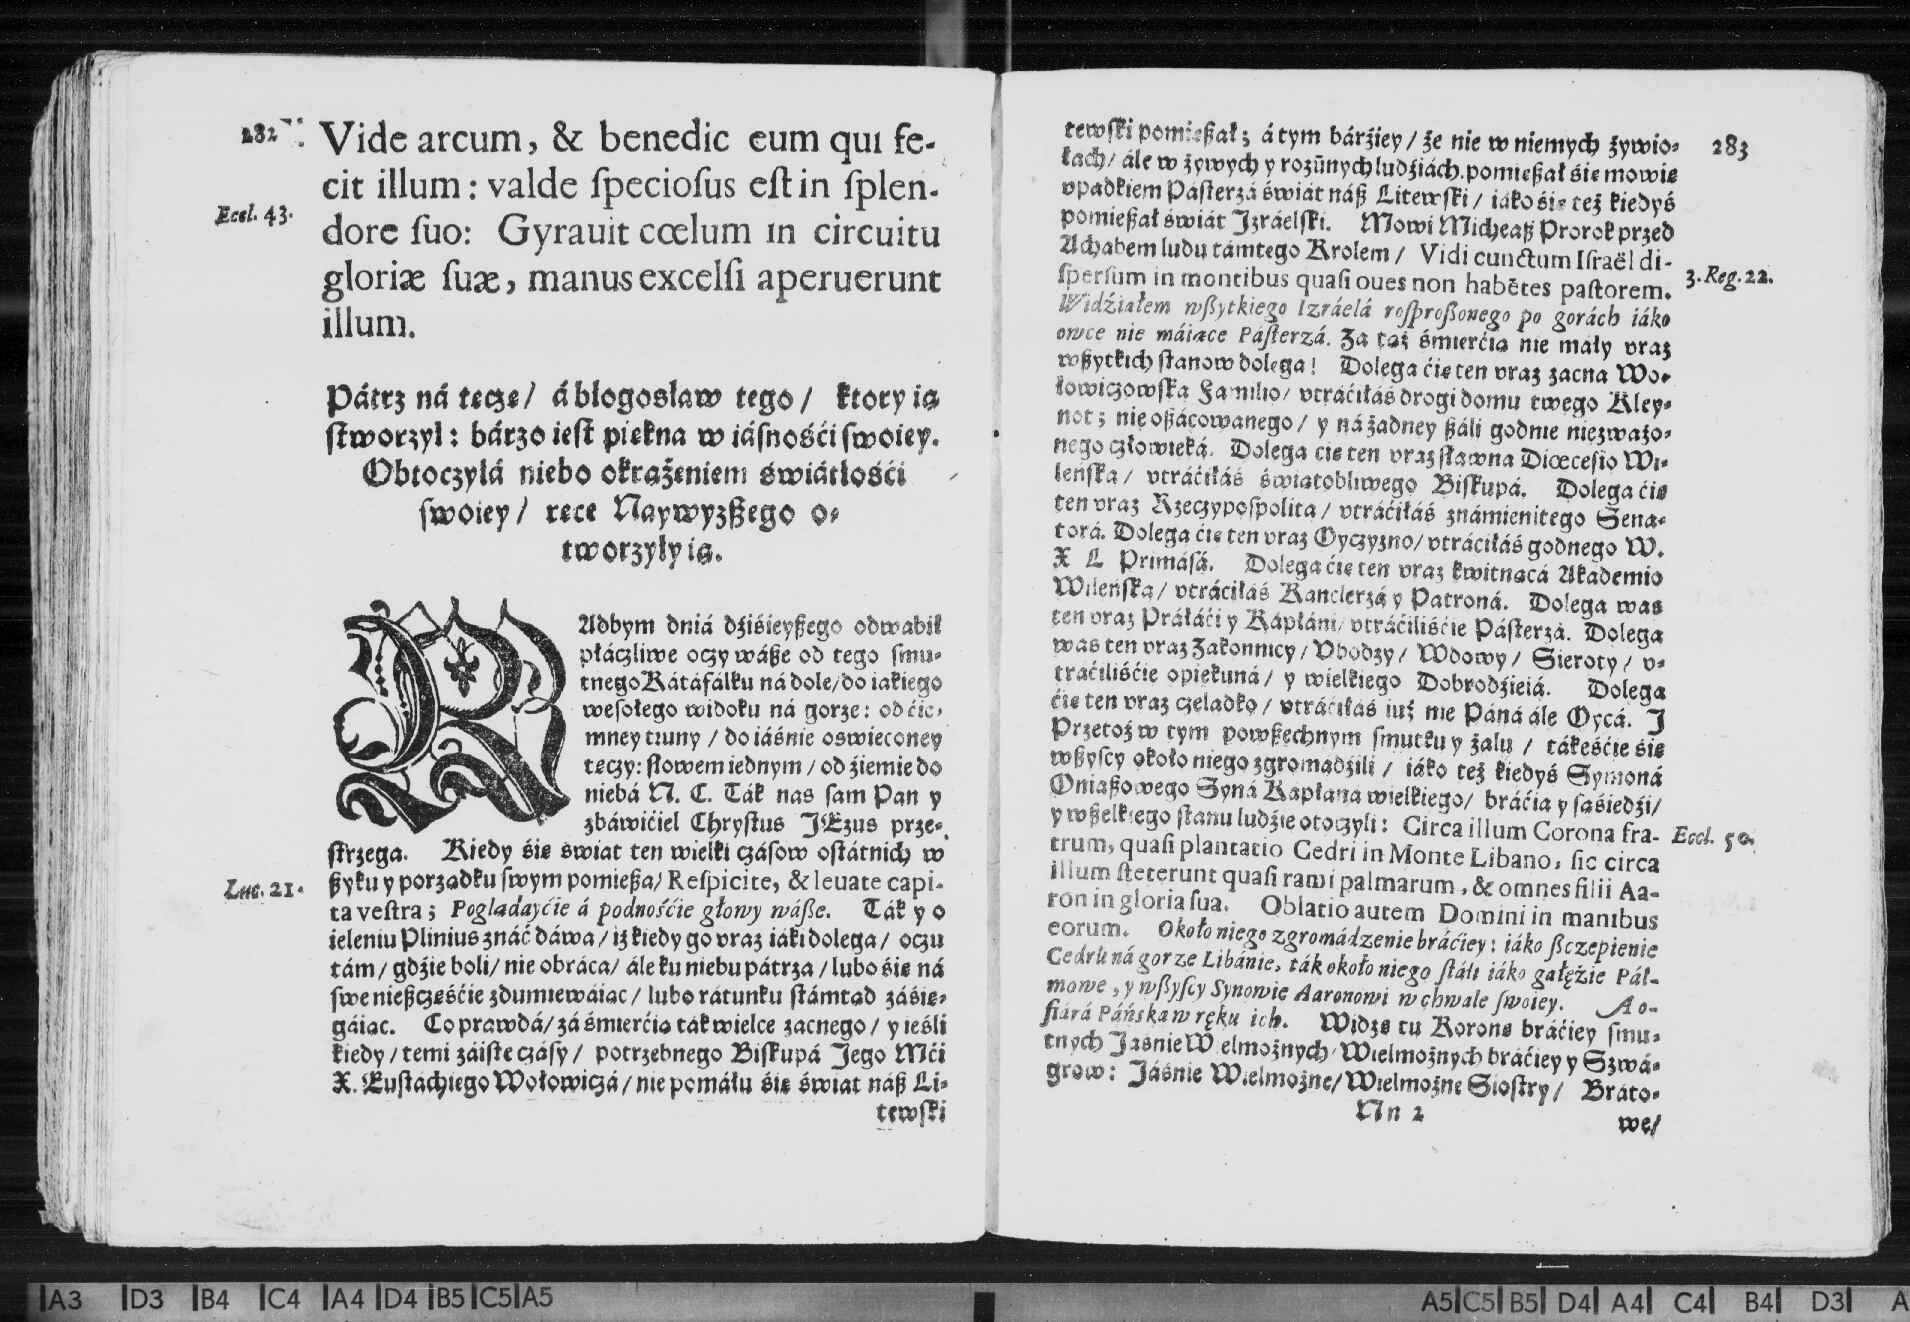 282
Vide arcum, & benedic eum qui fe-
cit illum: valde ſpecioſus eſt in ſplen-
Eccl. 43.
dore ſuo: Gyravit cœlum in circuitu
gloriæ ſuæ, manus excelſi aperuerunt
illum.
Pátrz ná tęczę/ á błogosław tego/ ktory ią
ſtworzył: bárzo ieſt piękna w iásnośći ſwoiey.
Obtoczyłá niebo okrążeniem świátłośći
ſwoiey/ ręce Naywyzßego o-
tworzyły ią.
RAdbym dniá dźiśieyßego odwabił
płáczliwe oczy wáße od tego ſmu-
tnego Kátáfálku ná dole/ do iákiego
weſołego widoku ná gorze: od ćie-
mney truny / do iáśnie oswieconey
tęczy: ſłowem iednym / od źiemie do
niebá N. C. Ták nas ſam Pan y
zbáwićiel Chryſtus JEzus prze-
ſtrzega. Kiedy śię świat ten wielki czáſow oſtátnich w
Luc. 21.
ßyku y porządku ſwym pomießa/ Reſpicite, & levate capi-
ta veſtra; Poglądayćie á podnośćie głowy wáße. Ták y o
ieleniu Plinius znáć dáwa/ iż kiedy go vraz iáki dolega/ oczu
tám/ gdźie boli/ nie obráca/ ále ku niebu pátrza/ lubo śię ná
ſwe nießczęśćie zdumiewáiąc/ lubo rátunku ſtámtąd záśię-
gáiąc. Co prawdá/ zá śmierćią ták wielce zacnego/ y ieśli
kiedy/ temi záiſte czáſy/ potrzebnego Biſkupá Jego Mći
X. Euſtáchiego Wołowiczá/ nie pomáłu śię świat náß Li-
tewſki
283
tewſki pomießał; á tym bárźiey/ że nie w niemych żywio-
łach/ ále w żywych y rozūnych ludźiách pomießał śię mowię
vpadkiem Páſterzá świát náß Litewſki/ iáko śię też kiedyś
pomießał świát Izráelſki. Mowi Micheaß Prorok przed
Achabem ludu támtego Krolem/ Vidi cunctum Iſraël di-
3. Reg. 22.
ſperſum in montibus quaſi oves non habētes paſtorem.
Widźiałem wßytkiego Izráelá roſproßonego po gorách iáko
owce nie máiące Páſterzá. Zá tąż śmierćią nie máły vraz
wßytkich ſtanow dolega! Dolega ćię ten vraz zacna Wo-
łowiczowſka Familio/ vtráćiłáś drogi domu twego Kley-
not; nie oßácowanego/ y ná żadney ßáli godnie niezważo-
nego człowieká. Dolega ćię ten vraz ſławna Diœceſio Wi-
leńſka/ vtráćiłáś świątobliwego Biſkupá. Dolega ćię
ten vraz Rzeczypoſpolita/ vtráćiłáś známienitego Sena-
torá. Dolega ćię ten vraz Oyczyzno/ vtráćiłáś godnego W.
X L Primáſá. Dolega ćię ten vraz kwitnącá Akademio
Wileńſka/ vtráćiłáś Kanclerzá y Patroná. Dolega was
ten vraz Práłáći y Kápłáni/ vtráćiliśćie Páſterzá. Dolega
was ten vraz Zakonnicy/ Vbodzy/ Wdowy/ Sieroty/ v-
tráćiliśćie opiekuná/ y wielkiego Dobrodźieiá. Dolega
ćię ten vraz czeladko/ vtráćiłáś iuż nie Páná ále Oycá. J
Przetoż w tym powßechnym ſmutku y żalu / tákeśćie śię
wßyſcy około niego zgromádźili / iáko też kiedyś Symoná
Oniaßowego Syná Kápłaná wielkiego/ bráćia y ſąśiedźi/
y wßelkiego ſtanu ludźie otoczyli: Circa illum Corona fra-
Eccl. 50.
trum, quaſi plantatio Cedri in Monte Libano, ſic circa
illum ſteterunt quaſi rami palmarum, & omnes filii Aa-
ron in gloria ſua. Oblatio autem Domini in manibus
eorum. Około niego zgromádzenie bráćiey: iáko ßczepienie
Cedru ná gorze Libánie, ták około niego ſtáli iáko gáłęźie Pál-
mowe, y wßyſcy Synowie Aaronowi w chwale ſwoiey. A o-
fiárá Páńska w ręku ich. Widzę tu Koronę bráćiey ſmu-
tnych Jáśnie Wielmożnych/ Wielmożnych bráćiey y Szwá-
grow: Jáśnie Wielmożne/ Wielmożne Sioſtry/ Bráto-
Nn 2
we/
A3 D3 B4 C4 A4 D4 B5 C5 A5
A5 C5 B5 D4 A4 C4 B4 D3 A